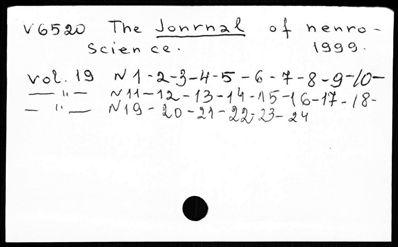 V6520 The Jonrnal of nenro-
Science. 1999.
vol. 19 N1-2-3-4-5-6-7-8-9-10-
—"— N11-12-13-14-15-16-17-18-
—"— N19-20-21-22-23-24